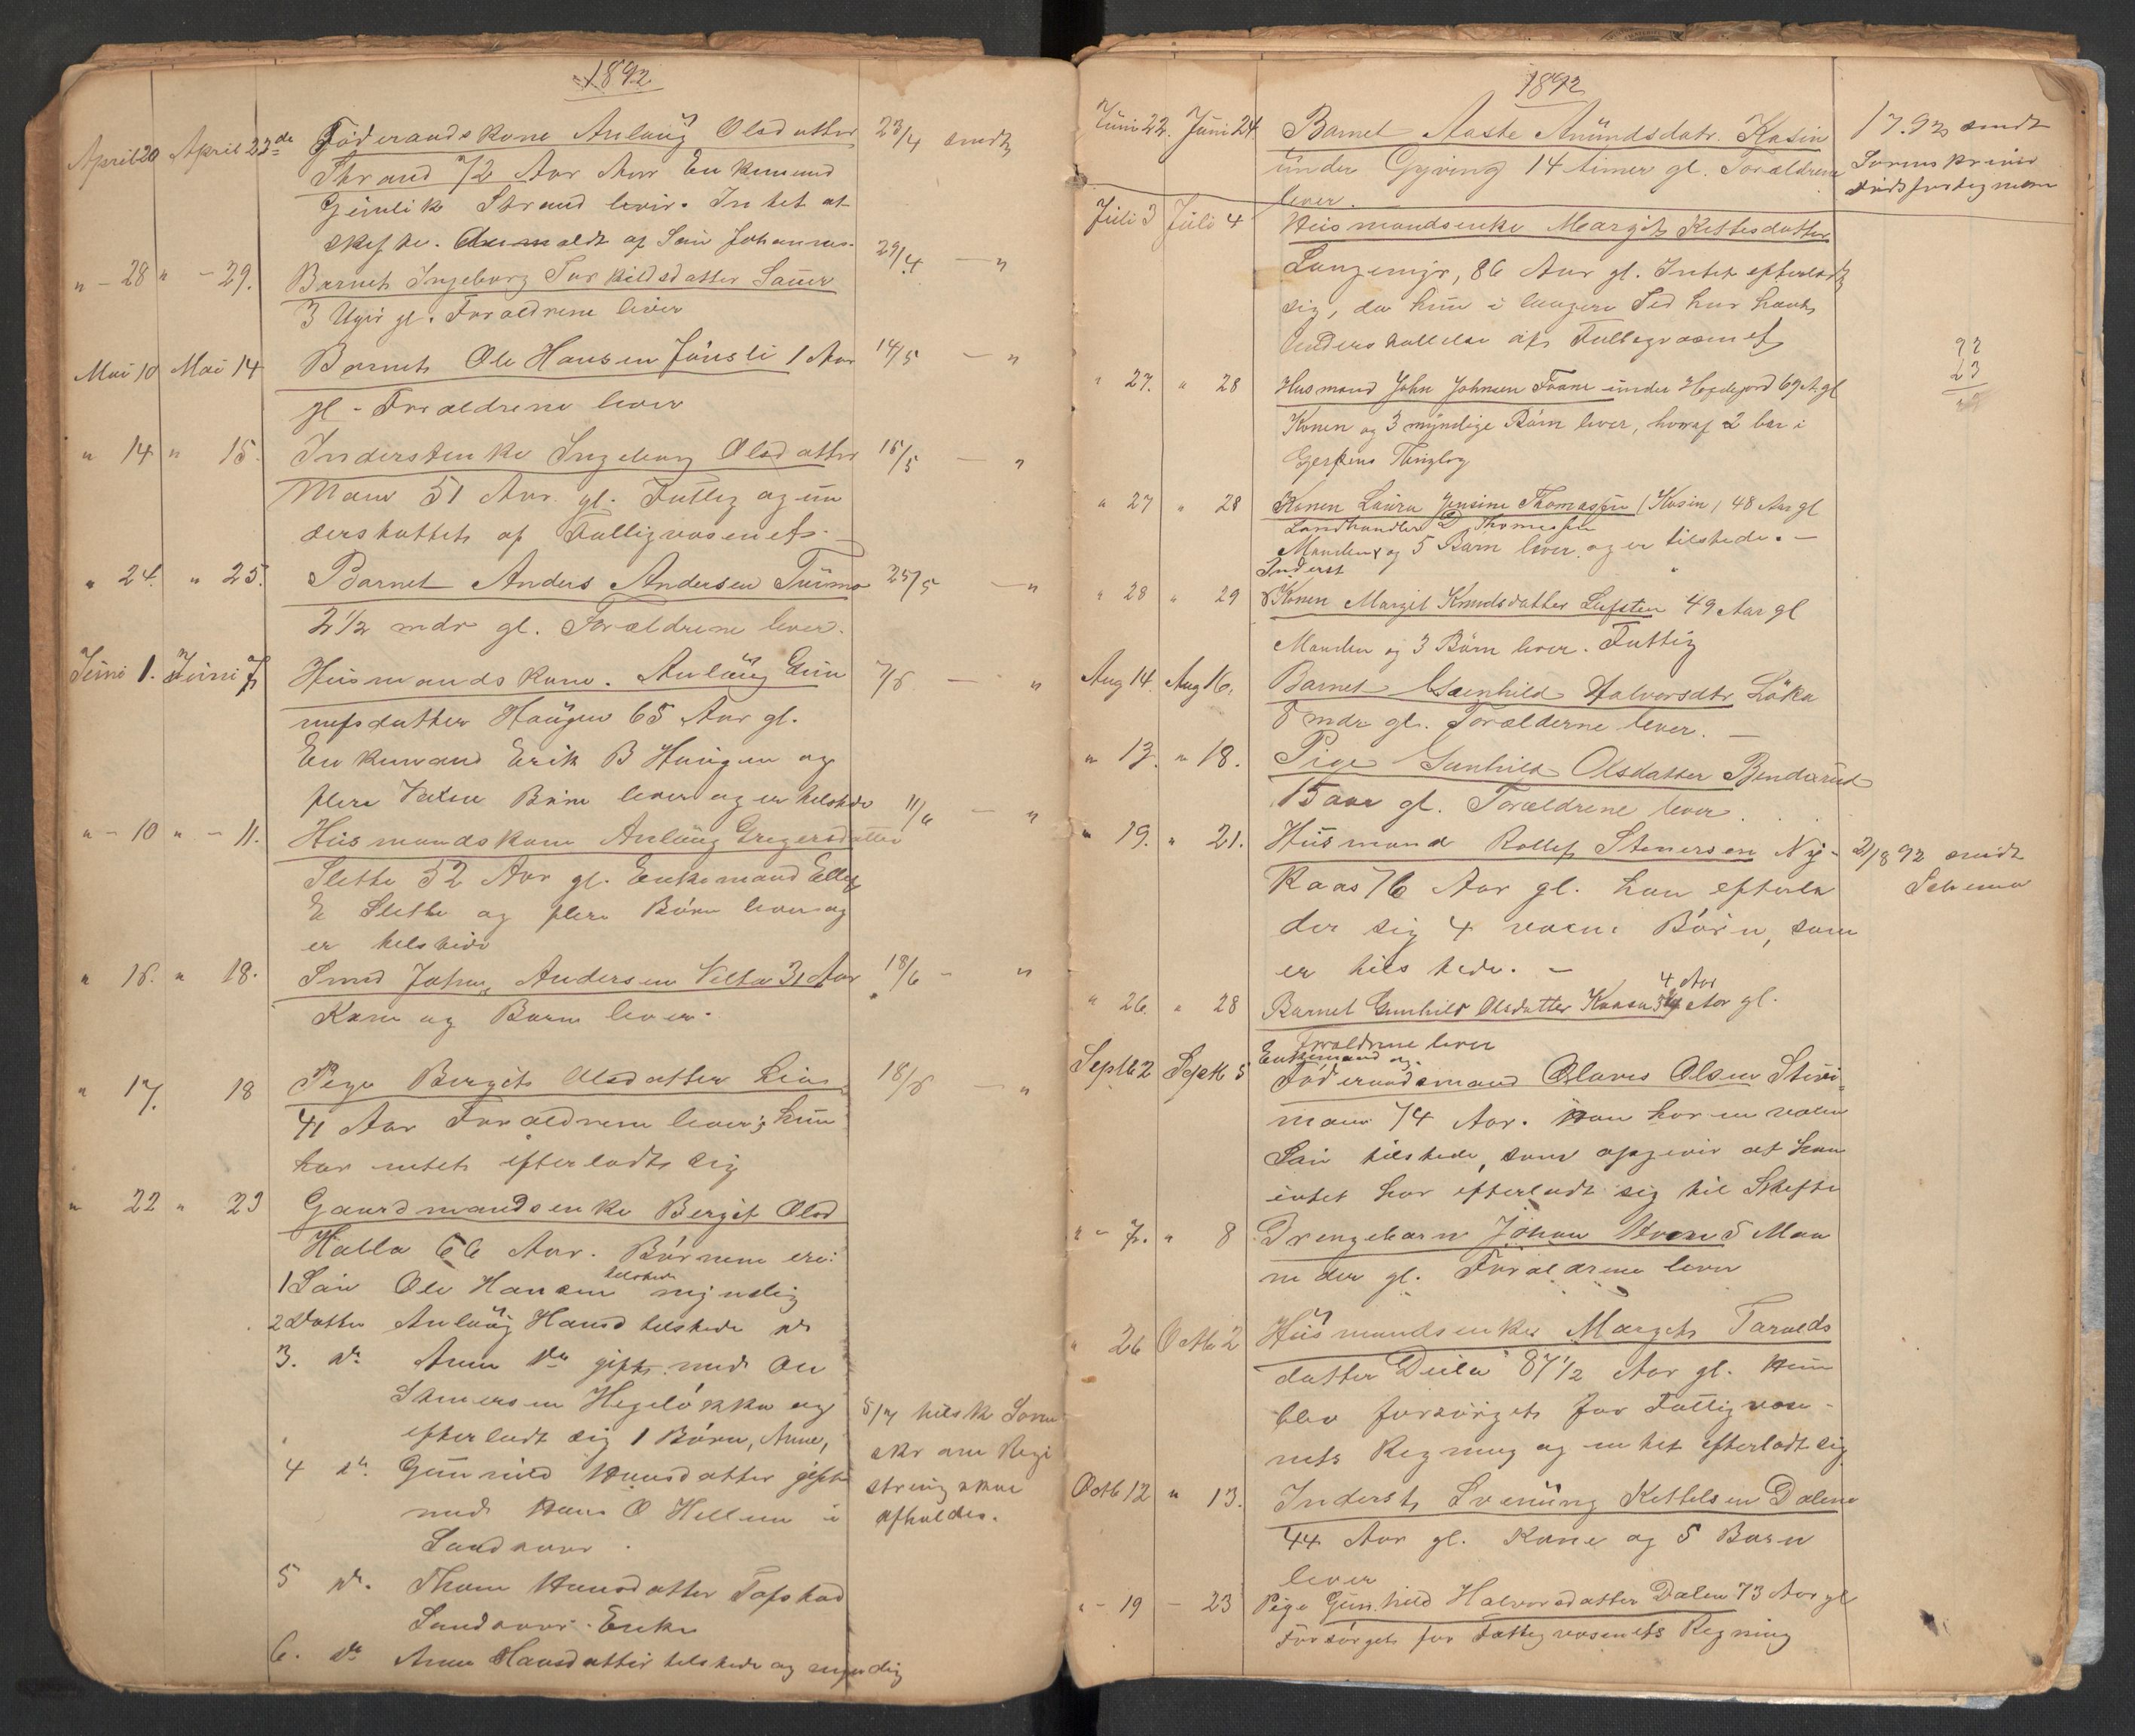 1892
April 20 April 23de Föderaadskone Anlaug Olsdatter 23/4 sendt
Strand 72 Aar Aar Enkemand
Gunlik Strand lever. Intet at
skifte. Anmeldt af Søn Johannes.
" - 28 " - 29. Barnet Ingeborg Torkildsdatter Sauer 29/4 — "
3 Uger gl. Forældrene lever
Mai 10 Mai 14 Barnet Ole Hansen Jönsli 1 Aar 14/5 — "
gl - Forældrene lever
" 14 " 15. Inderstenke Ingeborg Olsdatter 15/5 — "
Moen 51 Aar. gl. Fattig og un
derstøttet af Fattigvæsenet. —
" 24. " 25. Barnet Anders Andersen Turmo 25/5 — "
2 1/2 mdr gl. Forældrene lever.
Juni 1. Juni 7 Husmandskone. Anlaug Gun 7/6 — "
nufsdatter Haugen 65 Aar gl.
Enkemand Erik B Haugen og
flere Voxne Börn lever og er tilstede
" - 10 " - 11. Husmandskone Anlaug Gregersdatter 11/6 — "
Slette 52 Aar gl. Enkemand Ellef
E Slette og flere Börn lever og
er tilstede
" 16. " 18. Smed Johan Andersen Velta 31 Aar 18/6 - "
Kone og Barn lever.
" 17. 18 Pige Bergit Olsdatter Lien 18/6 — "
41 Aar Forældrene lever; hun
har intet efterladt sig
" 22 " 23 Gaardmandsenke Bergit Olsd
Halla 66 Aar. Börnene ere:
1 Søn Ole Hansen tilstede myndig
2 Datter Anlaug Hansd tilstede do
3. do Anne do gift med Ole
Stenersen Hegelökka og
efterladt sig 1 Börn, Anne,
4 do. Gunnild Hansdatter gift
med Hans O Hellem i
Sandøver.
5 do. Thone Hansdatter Tofstad
Sandøver. Enke
6. do Anne Hansdatter tilstede og myndig
5/7 tilsk Soren
skr om Regi
strering skue
afholdes.
1892
Juni 22. Juni 24 Barnet Aaste Amundsdatr. Kasin 1 7.92 sendt
under Gyving 14 timer gl. Forældrene Sorenskriver
lever. Dödsfortegnne
Juli 3 Juli 4 Husmandsenke Margit Kettesdatter
Langemyr, 86 Aar gl. Intet efterladt
sig, da hun i længere Tid har havt
Understøttelse af Fattigvæsenet
" 27. " 28 Husmand John Johnsen Foane under Hegdejord 69 A. gl
Konen og 3 myndige Börn lever, hvoraf 2 bor i
Gjerpens Thinglag
92
23
" 27 " 28 Konen Laura Jensine Thomassen (Kasin) 48 Aar gl
Landhandler D Thomassen
Manden og 5 Barn lever og er tilstede. —
Inderst
" 28 " 29 Konen Margit Knudsdatter Lufsten 49 Aar gl
Manden og 3 Börn lever. Fattig
Aug 14. Aug 16. Barnet Gunhild Halvorsdtr Löka
8 mdr gl. Forælderne lever. —
" 13. " 18. Pige Gunhild Olsdatter Benderud
15 aar gl. Forældrene lever.
" 19. " 21. Husmand Rollef Stenersen Ny- 21/8 92 sendt
Kaas 76 Aar gl. han efterla Schema
der sig 4 voxne Börn, som
er tilstede. —
" 26. " 28 Barnet Gunhild Olsdatter Kaasa 4 Aar gl.
Forældrene lever
Enkemand og
Septb 2 Septb 5 Föderaadsmand Olaves Olsen Stivi-
mann 74 Aar. Han har en voxen
Søn tilstede, som opgiver at han
intet har efterladt sig til Skifte
" - 7. " 8 Drengebarn Johan Moen 5 Maa
neder gl. Forældrene lever
" 26 Octb 2 Husmandsenke Margit Taralds
datter Deila 87 1/2 Aar gl. Hun
blev forsörget for Fattigvæse-
nets Regning og intet efterladt sig
Octb 12 " 13. Inderst Svenung Kettelsen Dalene
44 Aar gl. Kone og 5 Barn
lever
" - 19 - 23 Pige Gunhild Halvorsdatter Dalen 73 Aar gl
Forsörget for Fattigvæsenets Regning